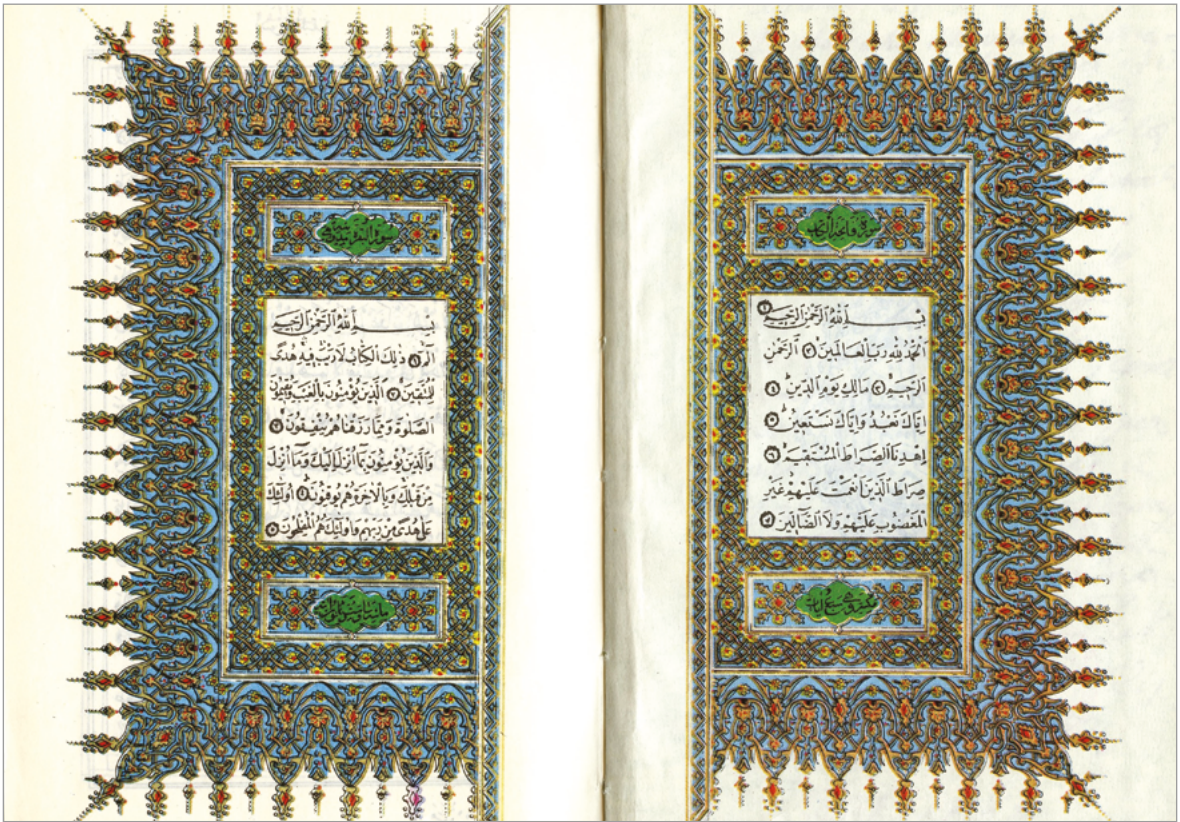 سورة فاتحة الكتاب
بِسْمِ اللّٰهِ الرَّحْمٰنِ الرَّحِيمِ ﴿١﴾
اَلْحَمْدُ لِلّٰهِ رَبِّ الْعَالَمِينَ ﴿٢﴾ اَلرَّحْمٰنِ
الرَّحِيمِ ﴿٣﴾ مَالِكِ يَوْمِ الدِّينِ ﴿٤﴾
اِيَّاكَ نَعْبُدُ وَاِيَّاكَ نَسْتَعِينُ ﴿٥﴾
اِهْدِنَا الصِّرَاطَ الْمُسْتَقِيمَ ﴿٦﴾
صِرَاطَ الَّذِينَ اَنْعَمْتَ عَلَيْهِمْ غَيْرِ
الْمَغْضُوبِ عَلَيْهِمْ وَلَا الضَّالِّينَ ﴿٧﴾
مكية وهي سبع آيات
سورة البقرة
بِسْمِ اللّٰهِ الرَّحْمٰنِ الرَّحِيمِ
الٓمٓ ﴿١﴾ ذٰلِكَ الْكِتَابُ لَا رَيْبَ فِيهِ هُدًى
لِلْمُتَّقِينَ ﴿٢﴾ اَلَّذِينَ يُؤْمِنُونَ بِالْغَيْبِ وَيُقِيمُونَ
الصَّلٰوةَ وَمِمَّا رَزَقْنَاهُمْ يُنْفِقُونَ ﴿٣﴾
وَالَّذِينَ يُؤْمِنُونَ بِمَا اُنْزِلَ اِلَيْكَ وَمَا اُنْزِلَ
مِنْ قَبْلِكَ وَبِالْاٰخِرَةِ هُمْ يُوقِنُونَ ﴿٤﴾ اُولٰئِكَ
عَلٰى هُدًى مِنْ رَبِّهِمْ وَاُولٰئِكَ هُمُ الْمُفْلِحُونَ ﴿٥﴾